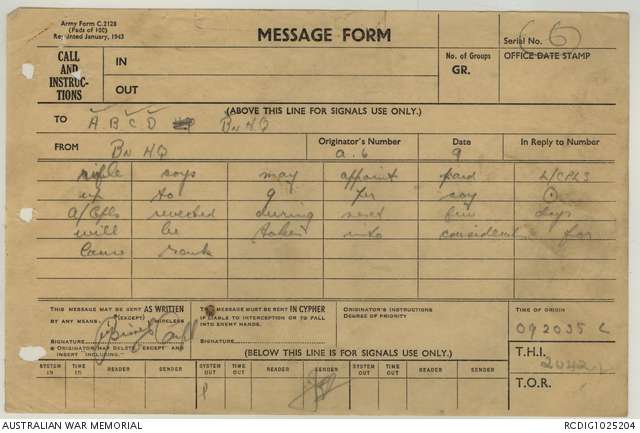 Army Form C.2128
(Pads of 100)
Reprinted January, 1943
MESSAGE FORM
Serial No. (6)
CALL
AND
INSTRUC-
TIONS
IN
OUT
No. of Groups
GR.
OFFICE DATE STAMP
(ABOVE THIS LINE FOR SIGNALS USE ONLY.)
TO A. B C D BN HQ
FROM BN HQ
Originator's Number a.6
Date 9
In Reply to Number
rifle coys may appoint paid L/CPLS
up to 9 per coy
A/Cpls reverted during next few days
will be taken into considerat for
Lance rank
THIS MESSAGE MAY BE SENT AS WRITTEN
BY ANY MEANS (EXCEPT) WIRELESS
SIGNATURE
ORIGINATOR MAY DELETE EXCEPT AND
INSERT INCLUDING."
THIS MESSAGE MUST BE SENT IN CYPHER
IF LIABLE TO INTERCEPTION OR TO FALL
INTO ENEMY HANDS.
SIGNATURE
ORIGINATOR'S INSTRUCTIONS
DEGREE OF PRIORITY
TIME OF ORIGIN
092035 L
(BELOW THIS LINE IS FOR SIGNALS USE ONLY.)
T.H.I. 2042
T.O.R.
SYSTEM IN TIME IN READER SENDER SYSTEM OUT TIME OUT READER SENDER SYSTEM OUT TIME OUT READER SENDER
AUSTRALIAN WAR MEMORIAL
RCDIG1025204